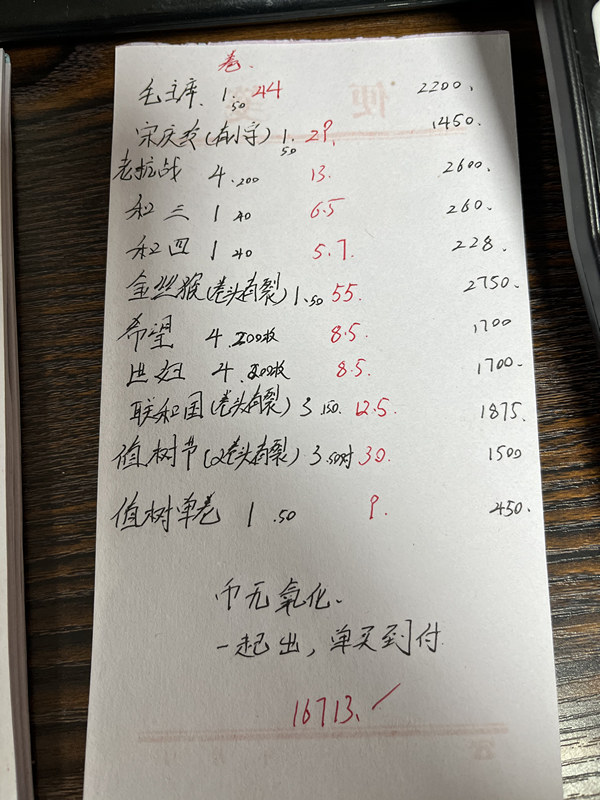 卷.
毛主席. 1.50 44 2200.
宋庆令(有小字) 1.50 29. 1450.
老抗战 4.200 13. 2600.
和三 1 40 6.5 260.
和四 1 40 5.7. 228.
金丝猴(卷头有裂) 1.50 55. 2750.
希望 4.200枚 8.5. 1700
世妇 4.200枚 8.5. 1700.
联和国(卷头有裂) 3 150. 12.5. 1875.
值树节(2卷头有裂). 3.50对 30. 1500
值树单卷 1 .50 9. 450.
币无氧化.
一起出, 单买到付.
16713.
便